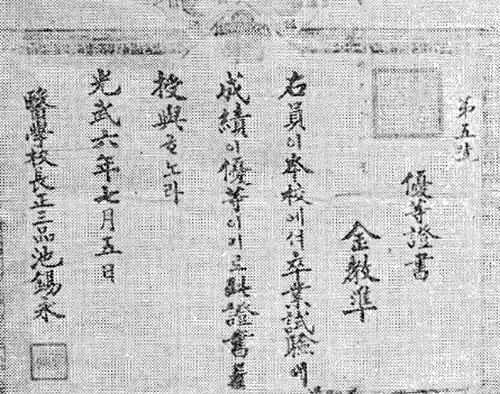 第五號
優等證書
金敎準
右員이夲校에셔卒業試驗에
成績이優等이기로此證書를
授與ᄒᆞ노라
光武六年七月五日
醫學校長正三品池錫永